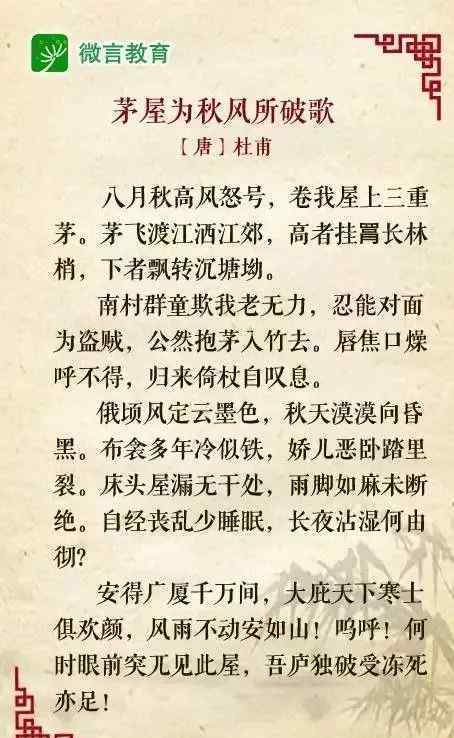 微言教育
茅屋为秋风所破歌
［唐］杜甫
八月秋高风怒号，卷我屋上三重
茅。茅飞渡江洒江郊，高者挂罥长林
梢，下者飘转沉塘坳。
南村群童欺我老无力，忍能对面
为盗贼，公然抱茅入竹去。唇焦口燥
呼不得，归来倚杖自叹息。
俄顷风定云墨色，秋天漠漠向昏
黑。布衾多年冷似铁，娇儿恶卧踏里
裂。床头屋漏无干处，雨脚如麻未断
绝。自经丧乱少睡眠，长夜沾湿何由
彻？
安得广厦千万间，大庇天下寒士
俱欢颜，风雨不动安如山！呜呼！何
时眼前突兀见此屋，吾庐独破受冻死
亦足！